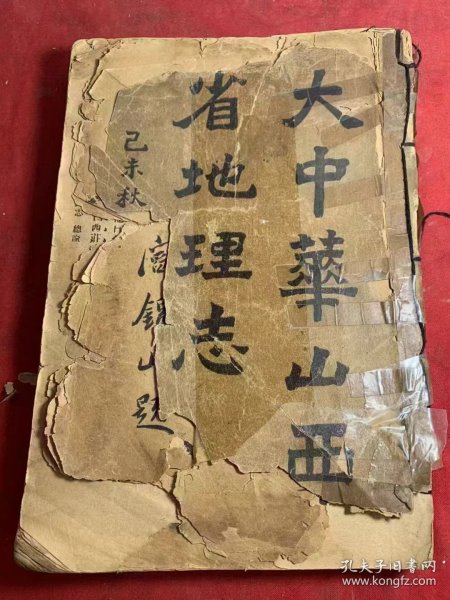 大中華山西
省地理志
己未秋
閻錫山題
總論
孔夫子旧书网
www.kongfz.com